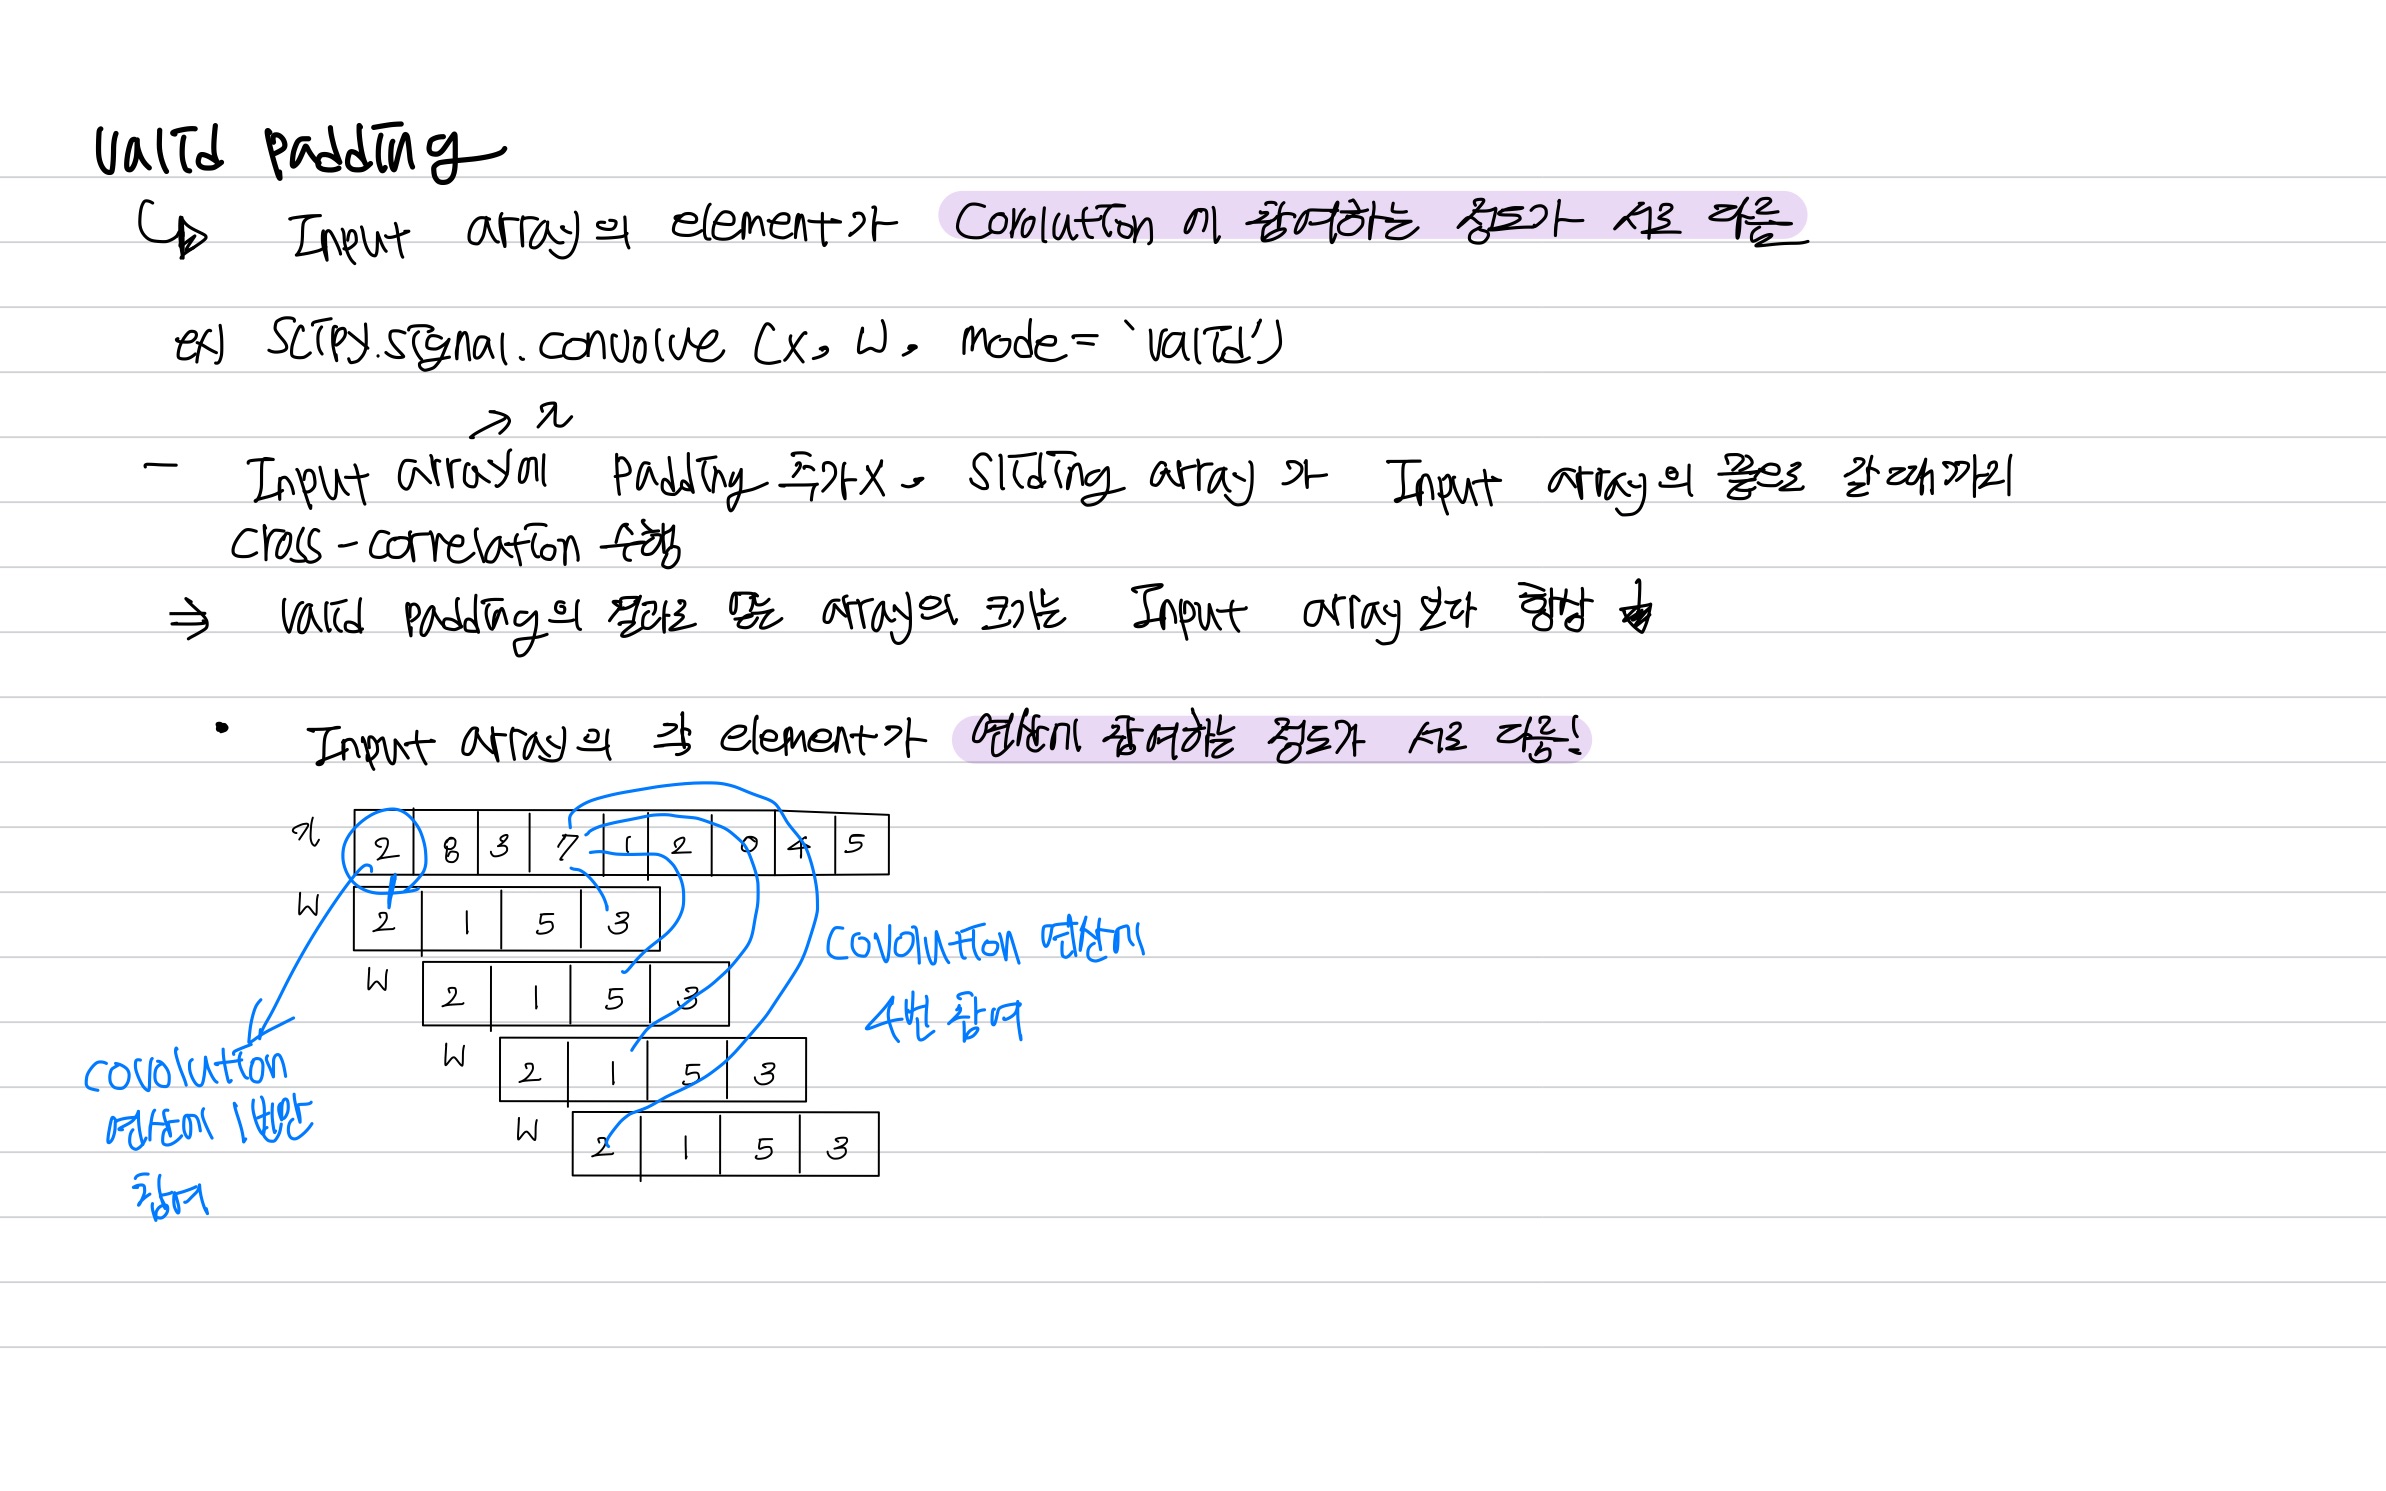 Valid padding
Input array의 element가 Covolution 에 참여하는 정도가 서로 다름
ex) Scipy.signal.convolve (x, w, mode = 'valid')
→ x
- Input array에 padding 추가X, Sliding array가 Input array의 끝으로 갈때까지
cross-correlation 수행
⇒ Valid padding의 결과로 얻은 array의 크기는 Input array보다 항상 ↓
• Input array의 각 element가 연산에 참여하는 정도가 서로 다름!
x 2 8 3 7 1 2 0 4 5
W 2 1 5 3
W 2 1 5 3
W 2 1 5 3
W 2 1 5 3
covolution 연산에
4번 참여
covolution
연산에 1번만
참여